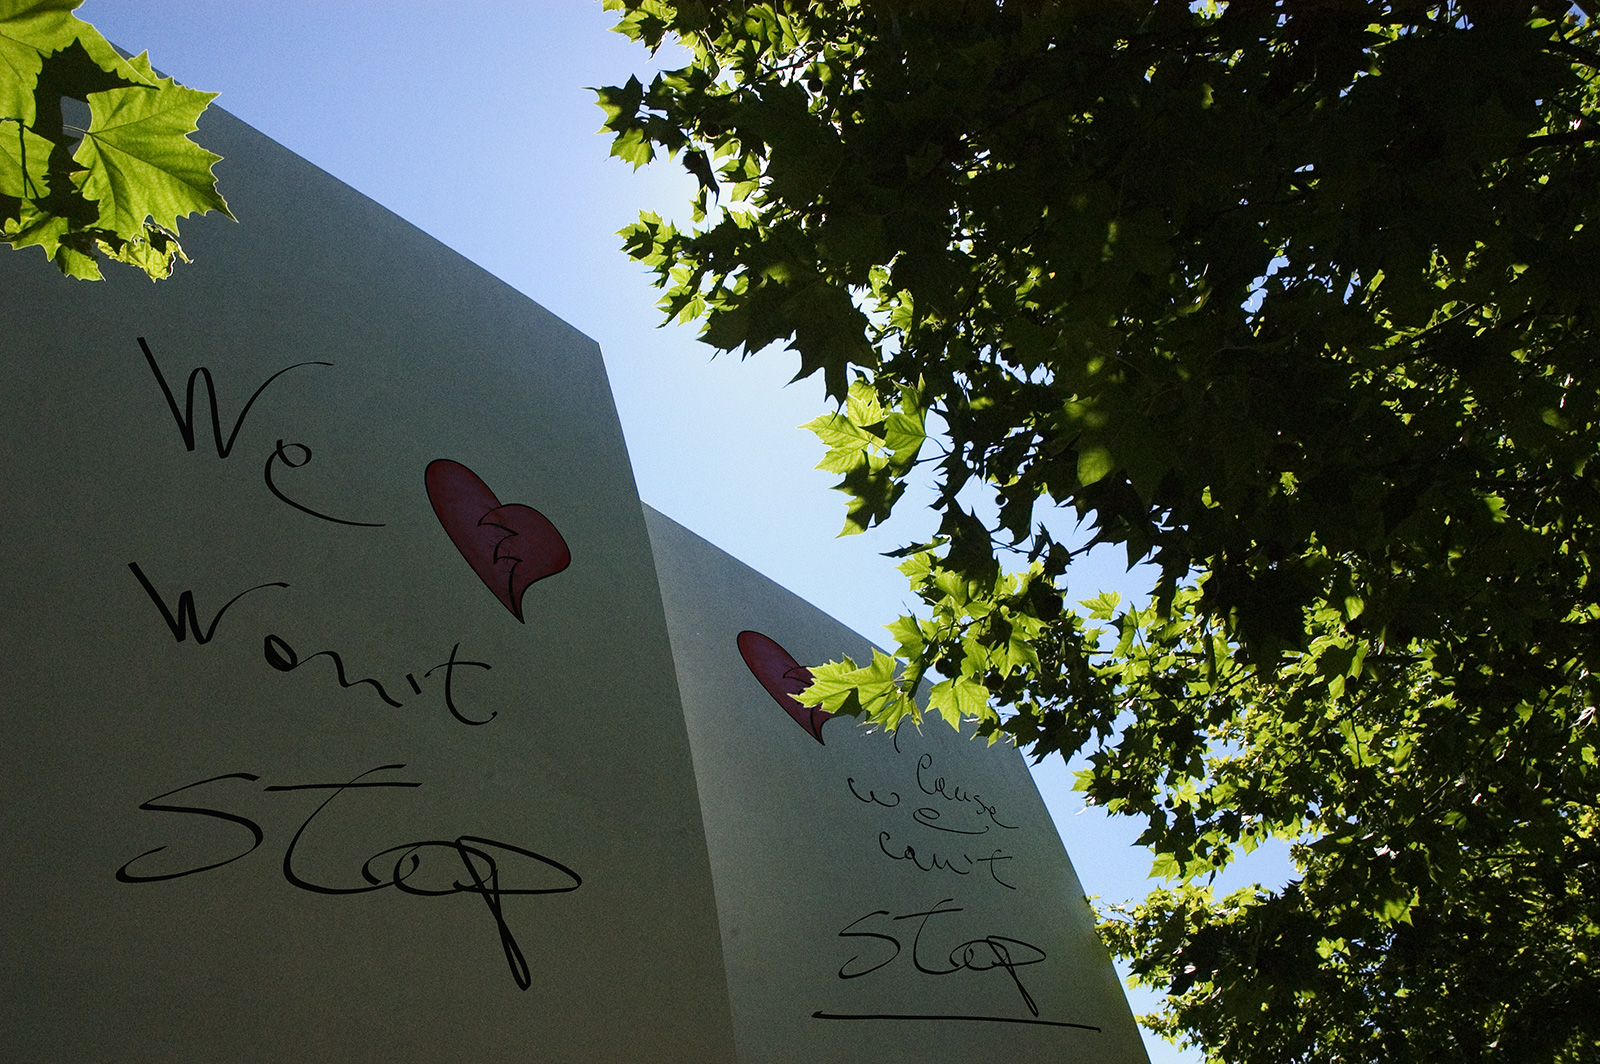 We
Won't
Stop
'Cause
we
can't
Stop